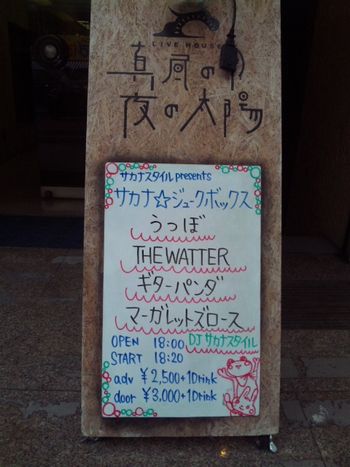 LIVE HOUSE
真夏の
夜の太陽
サカナスタイル presents
サカナ☆ジュークボックス
うっぼ
THE WATTER
ギターパンダ
マーガレットズロース
OPEN 18:00 DJ サカナスタイル
START 18:20
adv ¥2,500+1Drink
door ¥3,000+1Drink